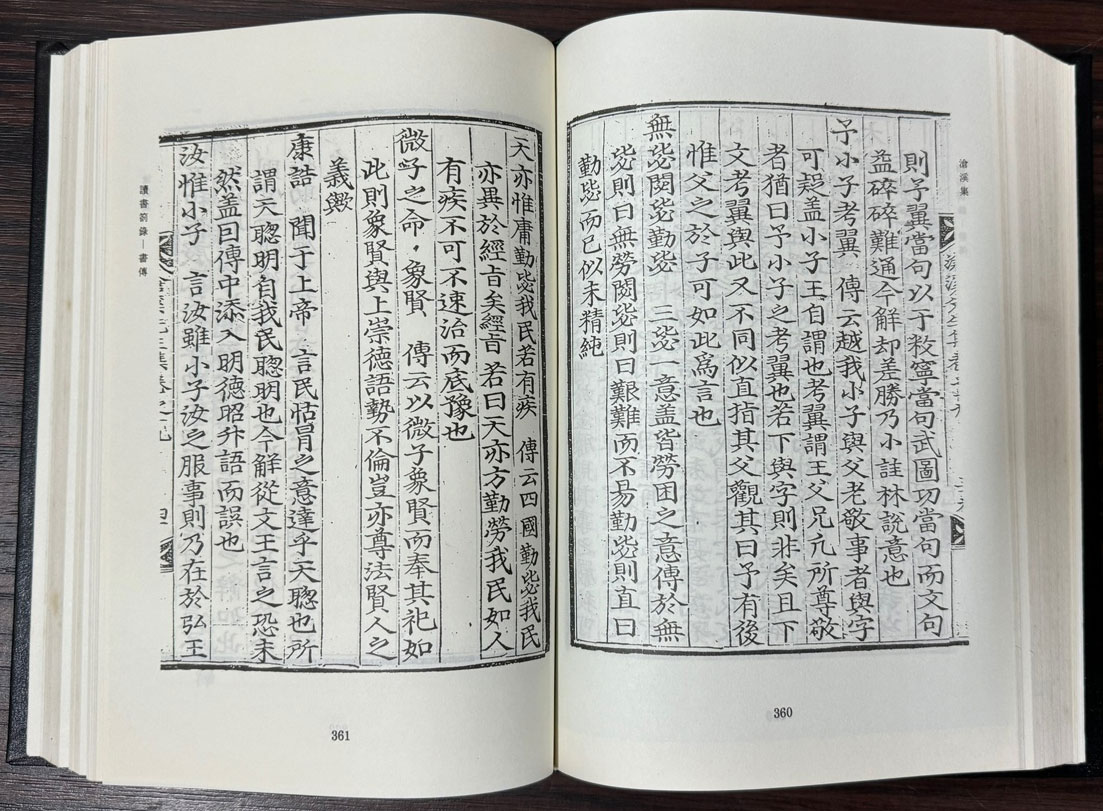 滄溪集
則予翼當句以于敉寧當句武圖功當句而文句
益碎碎難通今解却差勝乃小註林說意也
予小子考翼 傳云越我小子與父老敬事者與字
可疑盖小子王自謂也考翼謂王父兄凢所尊敬
者猶曰予小子之考翼也若下與字則非矣且下
文考翼與此又不同似直指其父觀其曰予有後
惟父之於子可如此爲言也
無毖閟毖勤毖 三毖一意盖皆勞困之意傳於無
毖則曰無勞閟毖則曰艱難而不易勤毖則直曰
勤毖而已似未精純
360
天亦惟庸勤毖我民若有疾 傳云四國勤毖我民
亦異於經旨矣經旨若曰天亦方勤勞我民如人
有疾不可不速治而底豫也
微子之命·象賢 傳云以微子象賢而奉其祀如
此則象賢與上崇德語勢不倫豈亦尊法賢人之
義歟
康誥 聞于上帝 言民怙冐之意達乎天聦也所
謂天聦明自我民聦明也今解從文王言之恐未
然盖曰傳中添入明德昭升語而誤也
汝惟小子 言汝雖小子汝之服事則乃在於弘王
讀書箚錄—書傳
361